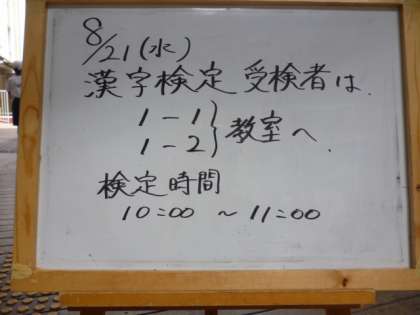 8/21(水)
漢字検定 受検者は.
1-1
1-2 } 教室へ.
検定時間
10:00 ~ 11:00